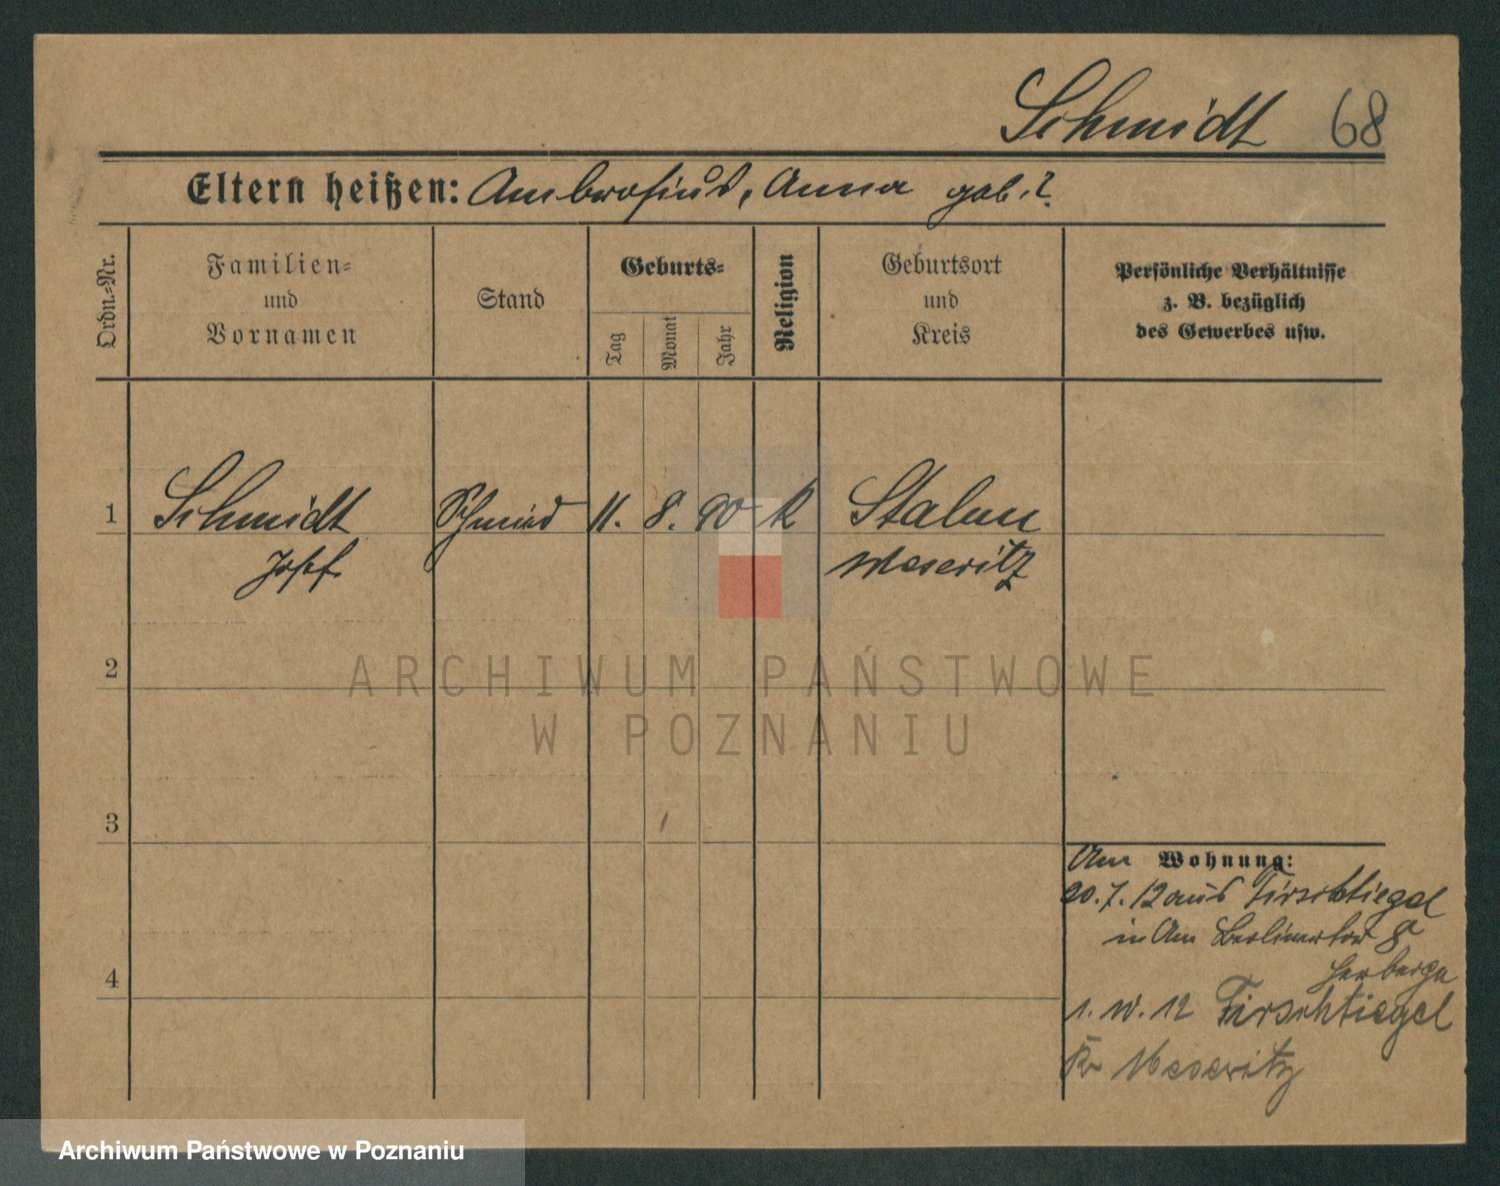 Schmidt 68
Eltern heißen: Ambrosius, Anna geb. ?
Ordn.-Nr.
Familien-
und
Vornamen
Stand
Geburts-
Tag
Monat
Jahr
Religion
Geburtsort
und
Kreis
Persönliche Verhältnisse
z. B. bezüglich
des Gewerbes usw.
1 Schmidt Schmied 11. 8. 90 k Stalun
Josef Meseritz
2
ARCHIWUM PAŃSTWOWE
W POZNANIU
3
Am Wohnung:
20.7.12 aus Tirschtiegel
in Am Berlinertor 8
Herberge
1. 12 Tirschtiegel
Kr Meseritz
4
Archiwum Państwowe w Poznaniu